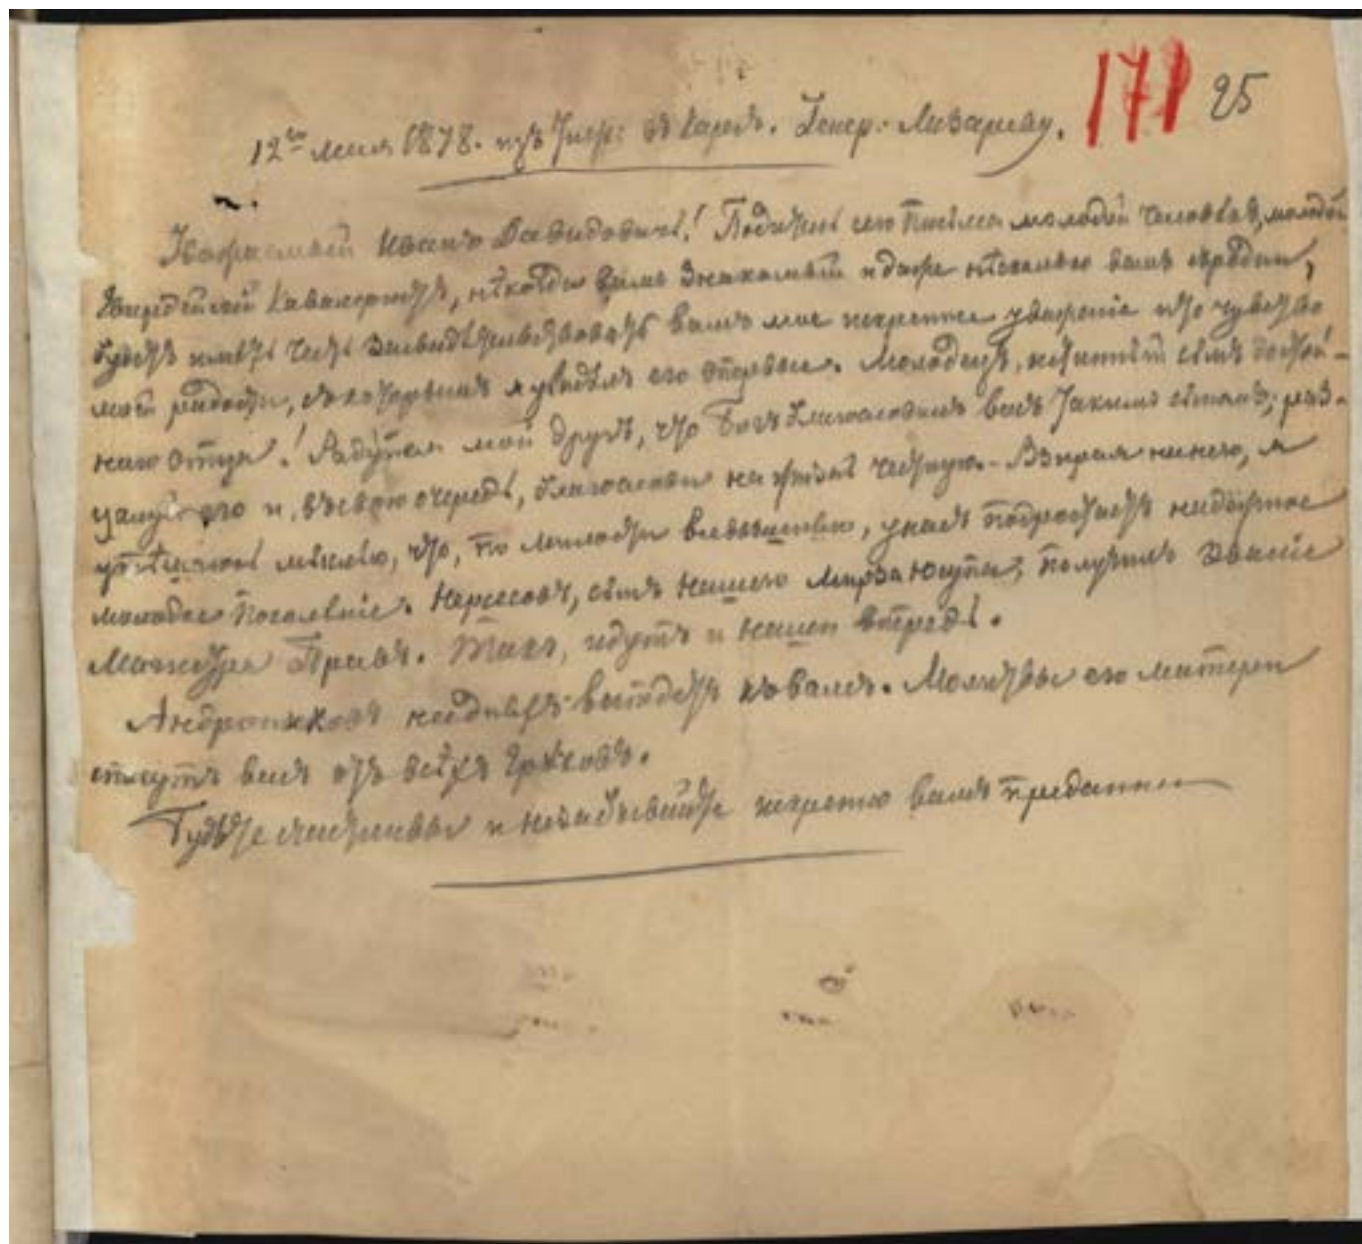 171 25
12го мая 1878. изъ Питер: въ Карсъ. Генер: Лазареву.
Уважаемый Иванъ Давидовичь! Податель сего письма молодой человѣкъ, молодой
Гвардейскій Кавалеристъ, нѣкогда вамъ знакомый и даже нѣсколько вамъ сродни,
будетъ имѣть честь засвидѣтельствовать вамъ мое искреннее уваженіе и то чувство
моей радости, съ которымъ я увидѣлъ его впервые. Молодецъ, истинный сынъ достой-
наго отца! Радуйся мой другъ, что Богъ благословилъ васъ такимъ сыномъ; раз-
цалуй его и, въ свою очередь, благослови на жизнь честную. Взирая на него, я
утѣшаюсь мыслью, что, по милости всевышняго, у насъ подростаетъ надежное
молодое поколѣніе. Нерсесовъ, сынъ нашего Мирза Юсупа, получилъ званіе
Магистра Правъ. Такъ, идутъ и наши впередъ.
Андрониковъ на дняхъ выѣдетъ къ вамъ. Молитвы его матери
спасутъ васъ отъ всѣхъ грѣховъ.
Будьте счастливы и не забывайте искренно вамъ преданнаго